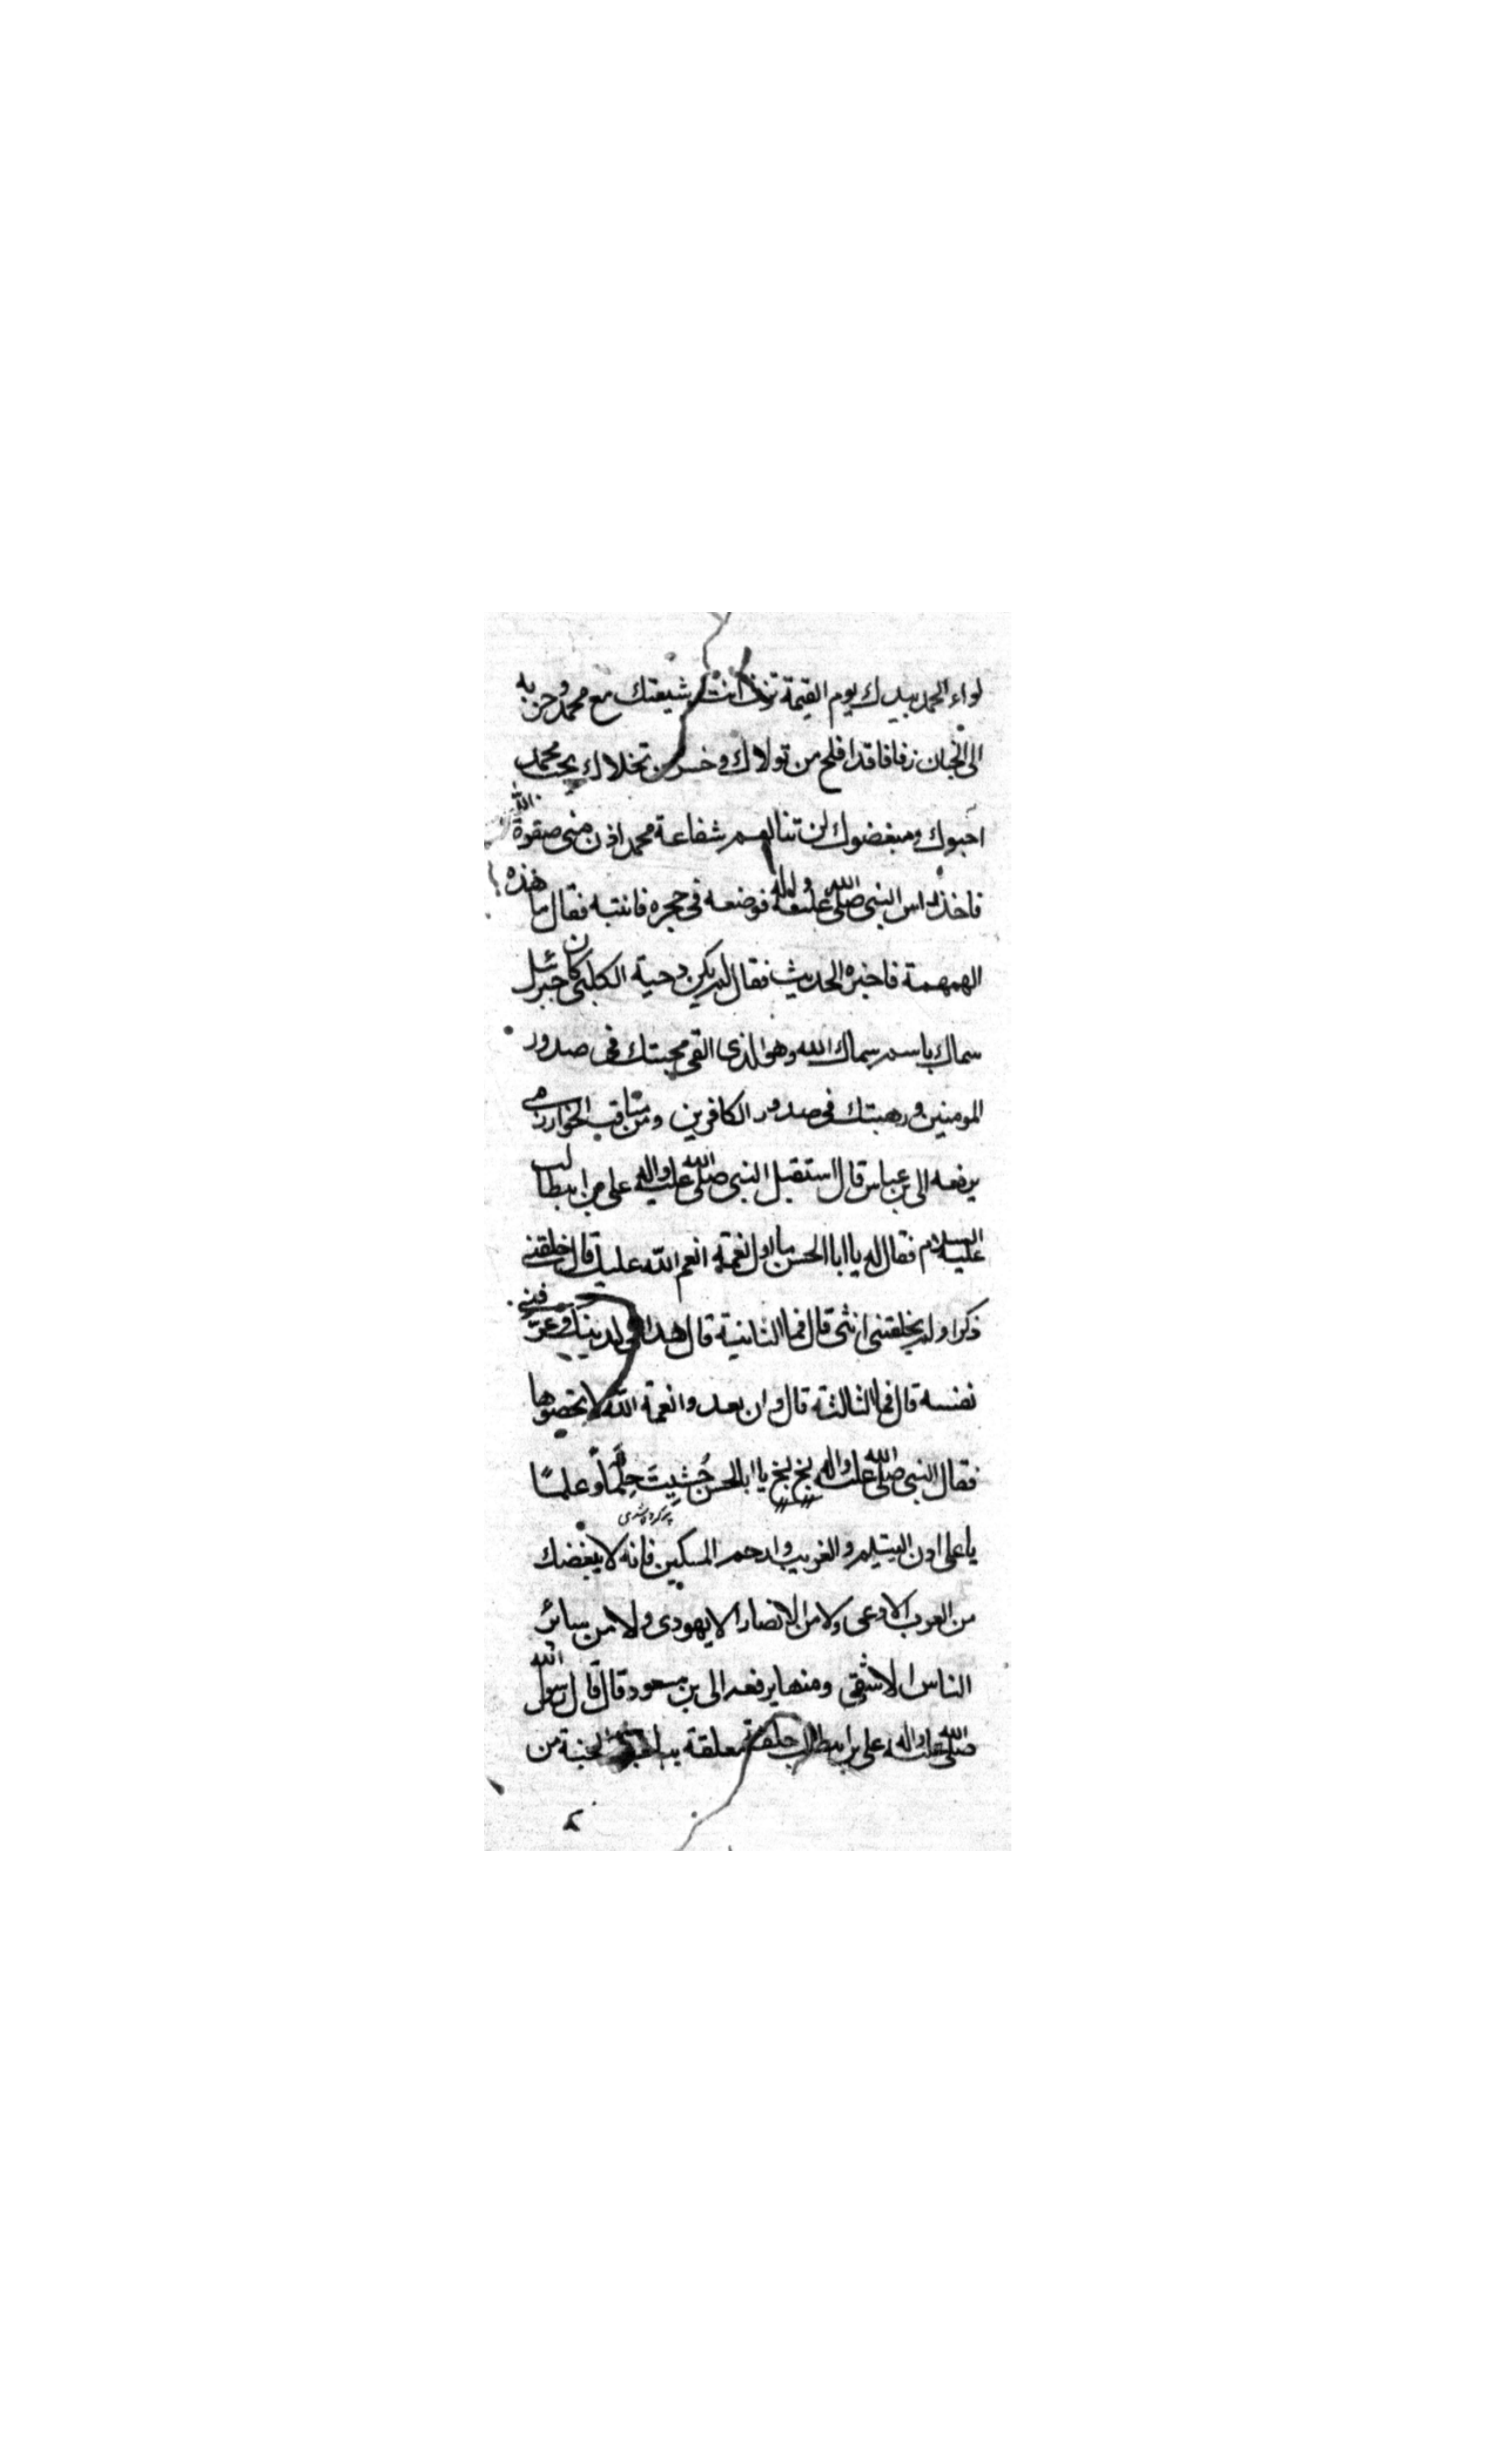 لواء الحمد بيدك يوم القيمة تزف انت وشيعتك مع محمد وحزبه
الى الجنان زفافا قد افلح من تولاك وخسر من تخلاك بحب محمد
احبوك ومبغضوك لن تنالهم شفاعة محمد ادن منى صفوة الله
فاخذ راس النبى صلى الله عليه واله فوضعه فى حجره فانتبه فقال ما هذه
الهمهمة فاخبره الحديث فقال لم يكن دحية الكلبى كان جبرئيل
سماك باسم سماك الله وهو الذى القى محبتك فى صدور
المومنين ورهبتك فى صدور الكافرين ومن مناقب الخوارزمى
يرفعه الى بن عباس قال استقبل النبى صلى الله عليه واله على بن ابيطالب
عليه السلام فقال له يا ابا الحسن ما اول نعمة انعم الله عليك قال خلقنى
ذكرا ولم يخلقنى انثى قال فما الثانية قال هدانى لدينه وعرفنى
نفسه قال فما الثالثة قال وان تعدوا نعمة الله لا تحصوها
فقال النبى صلى الله عليه واله بخ بخ يا ابا الحسن حُشِيتَ حِلْمًا وعلمًا
پر كرده شدى
يا على ادن اليتيم والغريب وارحم المسكين فانه لا يبغضك
من العرب الا دعى ولا من الانصار الا يهودى ولا من سائر
الناس الا شقى ومنها يرفعه الى بن مسعود قال قال رسول الله
صلى الله عليه واله على بن ابيطالب حلقة معلقة بباب الجنة من